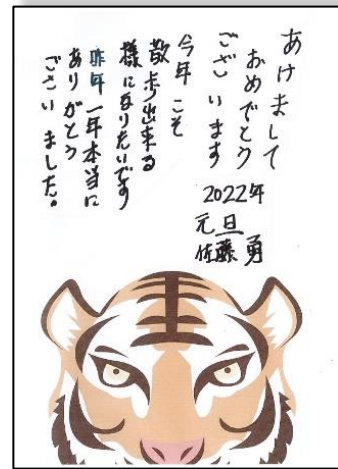 あけまして
おめでとう
ございます
今年こそ
散歩出来る
様になりたいです
昨年一年本当に
ありがとう
ございました。
2022年
元旦
佐藤勇